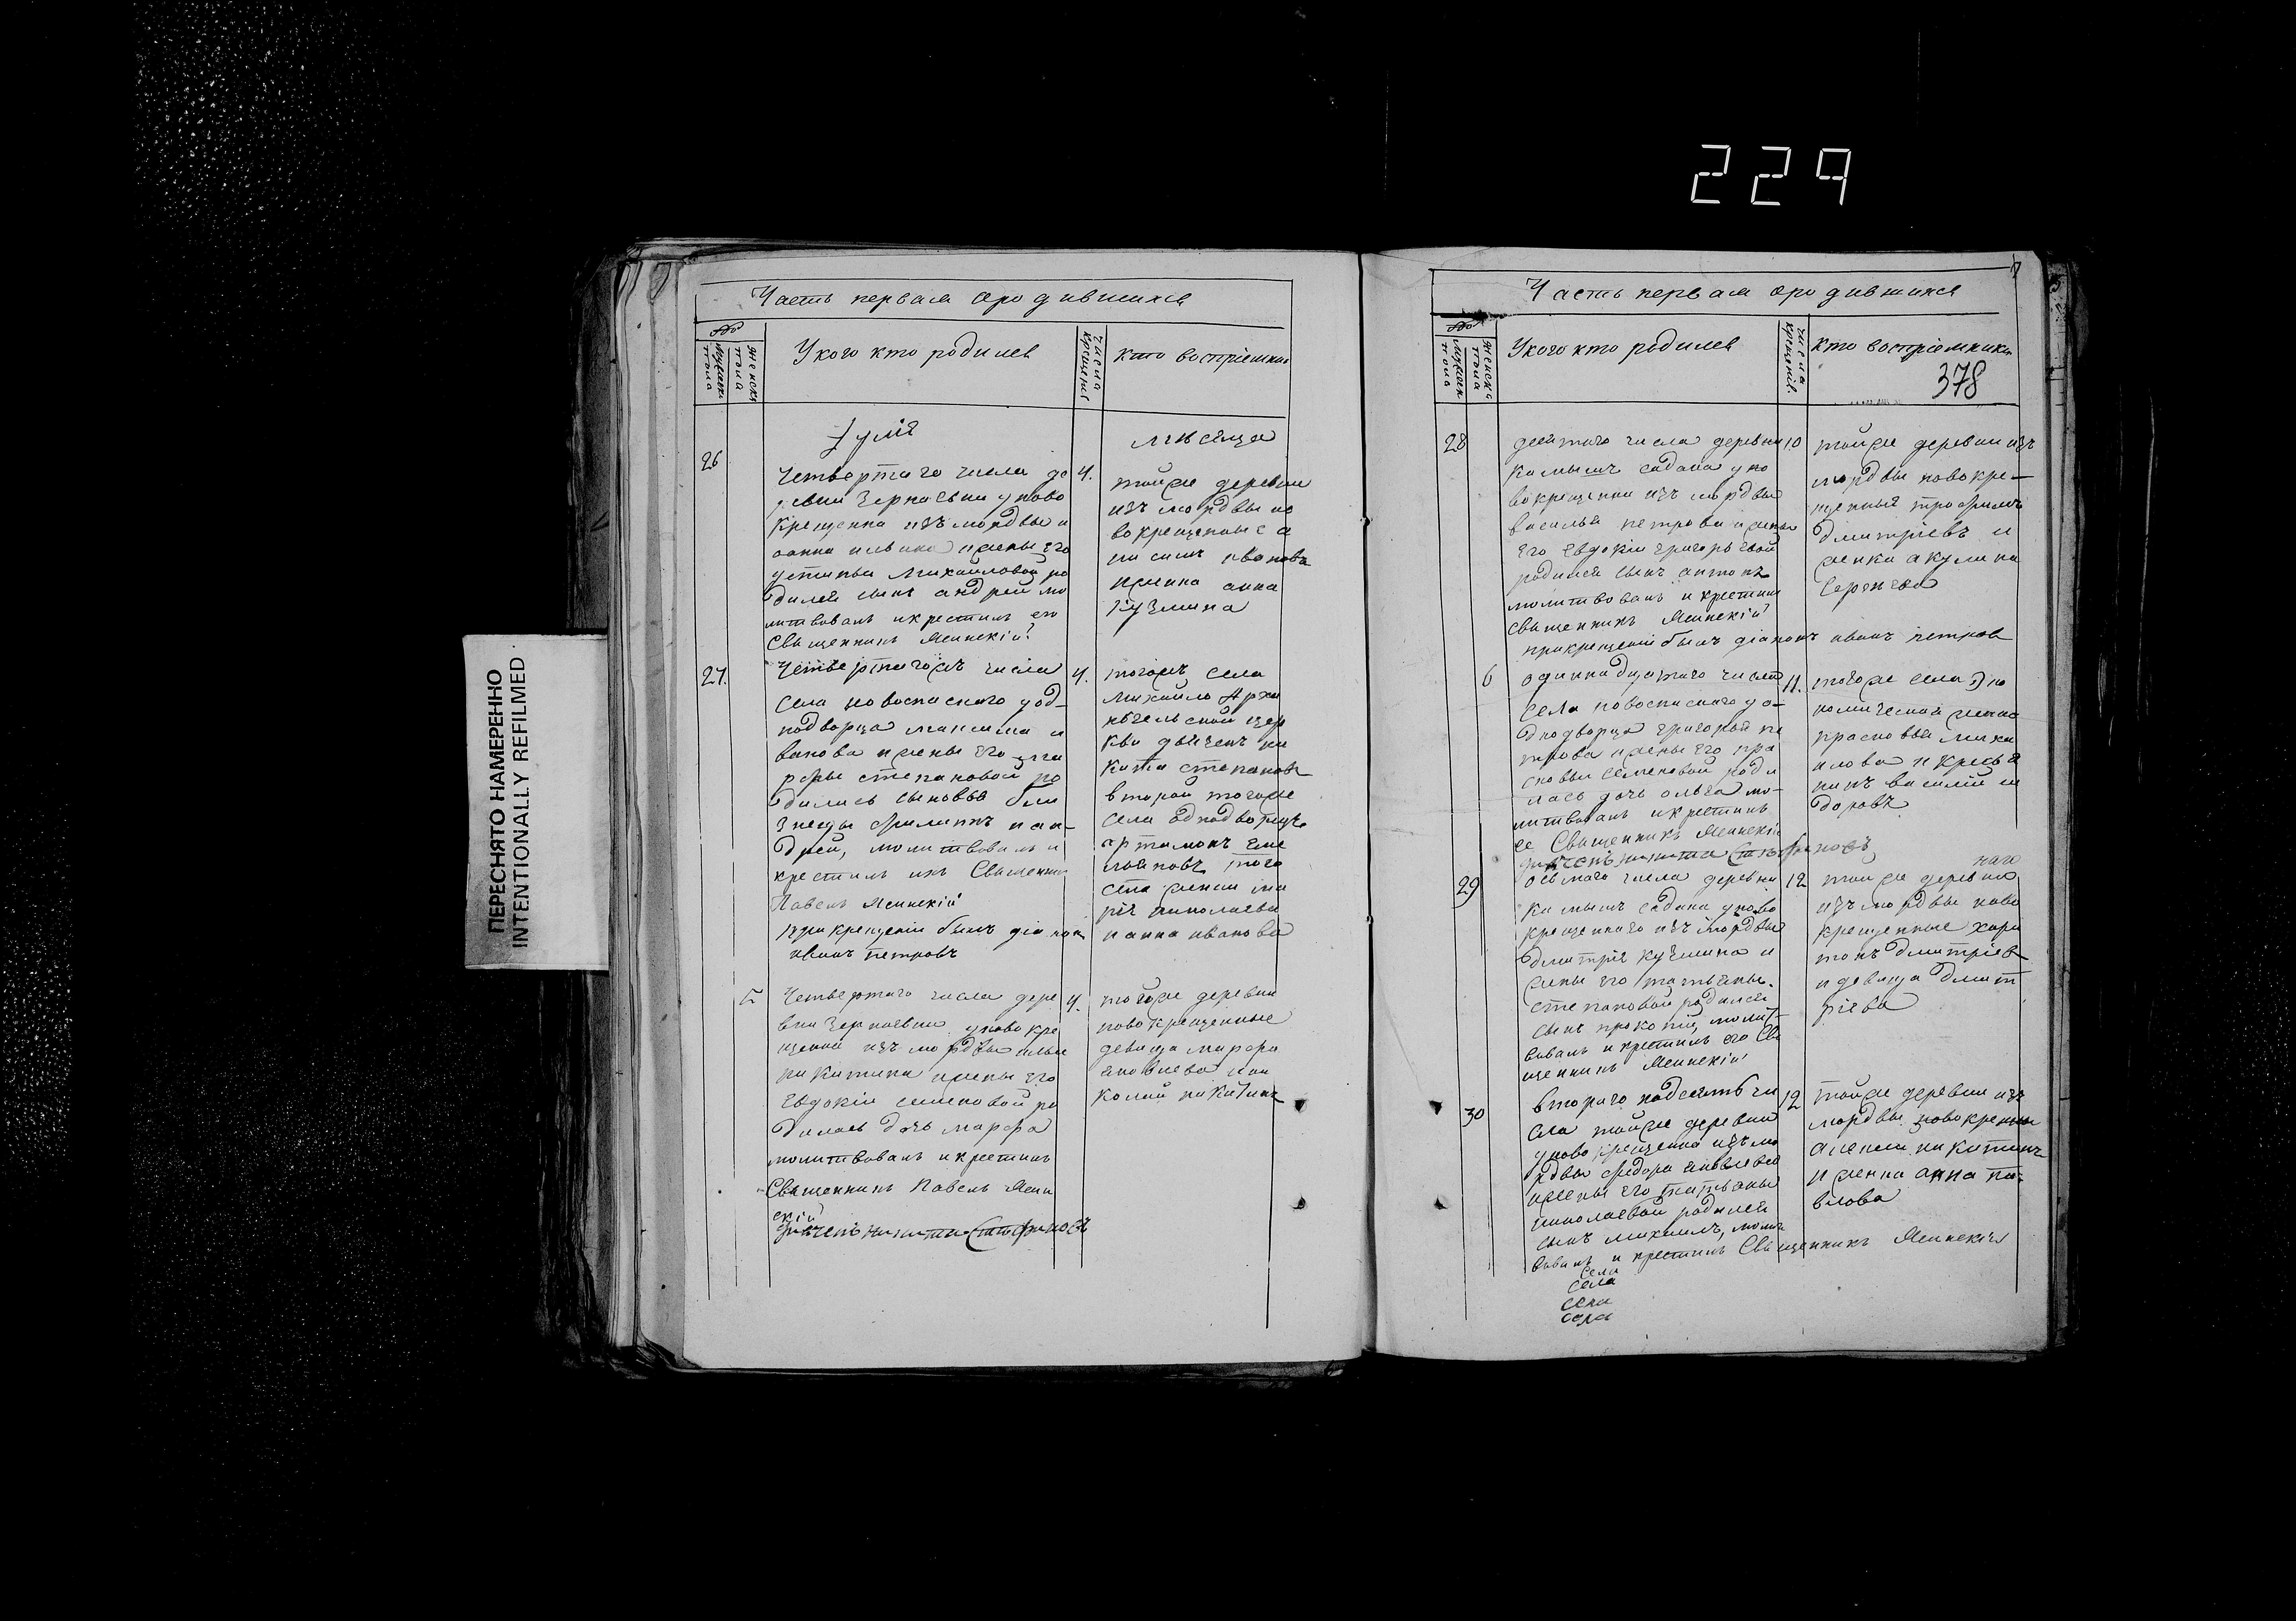 229
ПЕРЕСНЯТО НАМЕРЕННО
INTENTIONALLY REFILMED
Часть первая о родившихся
№
мужеска пола
женска пола
У кого кто родился
числа крещения
кто восприемники
Іулія
месяца
26
четвертаго числа де
ревни
у ново
крещенна изъ мордвы и
жены его
устиньи михайловой ро
дился сынъ андрей мо
литвовалъ и крестилъ его
Священникъ
4.
тойже деревни
изъ мордвы но
вокрещенные
ивановъ
и женка анна
кузмина
27.
четвертагожъ числа
села новоспаскаго у од-
нодворца максима и
ванова и жены его
степановой ро
дились сыновья бли
знецы филиппъ и ан-
дрей, молитвовалъ и
крестилъ ихъ Священник
Павелъ
при крещеніи былъ діакон
иванъ петровъ
4.
тогожъ села
михайло Архан
гельской цер
кви дьячекъ ни
кита степановъ
второй тогоже
села однодворецъ
артамонъ еме
льяновъ того
села женки ма
рія николаева
и анна иванова
5
четвертаго числа дере
вни
у новокре
щенна изъ мордвы ильи
никитина и жены его
Евдокіи семеновой ро
дилась дочь марфа
молитвовалъ и крестилъ
Священникъ Павелъ
дьячекъ никита Стефановъ
4.
тогоже деревни
новокрещенные
девица марфа
яковлева и ни
колай никитинъ
7
Часть первая о родившихся
№
мужеск пола
женска пола
У кого кто родился
числа крещенія
кто восприемники
378
28
десятаго числа деревни
камышъ садака у но
вокрещенна изъ мордвы
василья петрова и жены
его Евдокіи григорьевой
родился сынъ антонъ
молитвовалъ и крестилъ
священникъ
при крещеніи былъ діаконъ иванъ петров
10
тойже деревни изъ
мордвы новокре-
щенный трофимъ
дмитріевъ и
женка акулина
Сергеева
6
одиннадцатаго числа
села новоспаскаго у о-
днодворца григорья пе
трова и жены его пра
сковьи семеновой роди
лась дочь ольга мо-
литвовалъ и крестилъ
ее Священникъ
дьячекъ никита Стефановъ
11.
тогоже села эко
номической женка
прасковья миха
илова и кресья
нинъ василий
29
осьмаго числа деревни
камышъ садака у ново
крещеннаго изъ мордвы
дмитрія кузмина и
жены его татьяны
степановой родился
сынъ прокопій, молит-
вовалъ и крестилъ его Свя
щенникъ
12
тойже деревни
изъ мордвы ново
крещенные хари
тонъ дмитріев
и девица дмит
ріева
30
второго надесять чи
сла тойже деревни
у новокрещенна изъ мо
рдвы федора яковлева
и жены его татьяны
николаевой родился
сынъ михаилъ, молит
вовалъ и крестилъ Священникъ
12
тойже деревни изъ
мордвы новокрещены
алексей никитинъ
и женка анна па-
влова
села
села
села
села